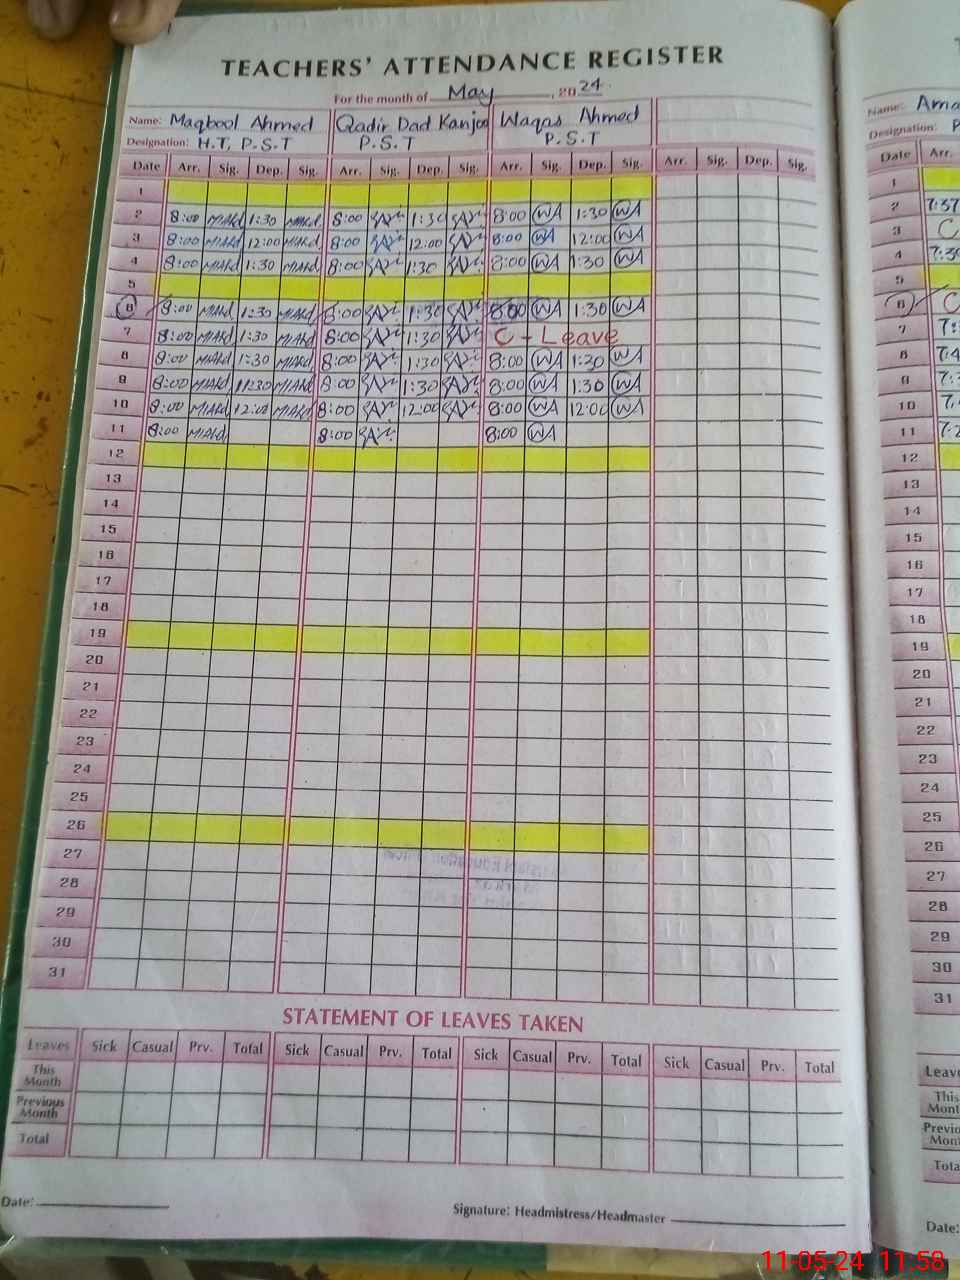 TEACHERS' ATTENDANCE REGISTER
For the month of May, 2024.
Name: Maqbool Ahmed Qadir Dad Kanjoo Waqas Ahmed
Designation: H.T, P.S.T P.S.T P.S.T
Date Arr. Sig. Dep. Sig. Arr. Sig. Dep. Sig. Arr. Sig. Dep. Sig. Arr. Sig. Dep. Sig.
1
2 8:00 1:30 8:00 1:30 8:00 WA 1:30 WA
3 8:00 12:00 8:00 12:00 8:00 WA 12:00 WA
4 8:00 1:30 8:00 1:30 8:00 WA 1:30 WA
5
6 8:00 1:30 8:00 1:30 8:00 WA 1:30 WA
7 8:00 1:30 8:00 1:30 C - Leave
8 8:00 1:30 8:00 1:30 8:00 WA 1:30 WA
9 8:00 8:00 1:30 8:00 WA 1:30 WA
10 8:00 12:00 8:00 12:00 8:00 WA 12:00 WA
11 8:00 8:00 8:00 WA
12
13
14
15
16
17
18
19
20
21
22
23
24
25
26
27
28
29
30
31
STATEMENT OF LEAVES TAKEN
Leaves Sick Casual Prv. Total Sick Casual Prv. Total Sick Casual Prv. Total Sick Casual Prv. Total
This
Month
Previous
Month
Total
Date:
Signature: Headmistress/Headmaster
Name:
Designation:
Date Arr.
1
2 7:37
3 C
4
5
6 C
7
8
9
10
11
12
13
14
15
16
17
18
19
20
21
22
23
24
25
26
27
28
29
30
31
This
Total
Date:
11-05-24 11:58